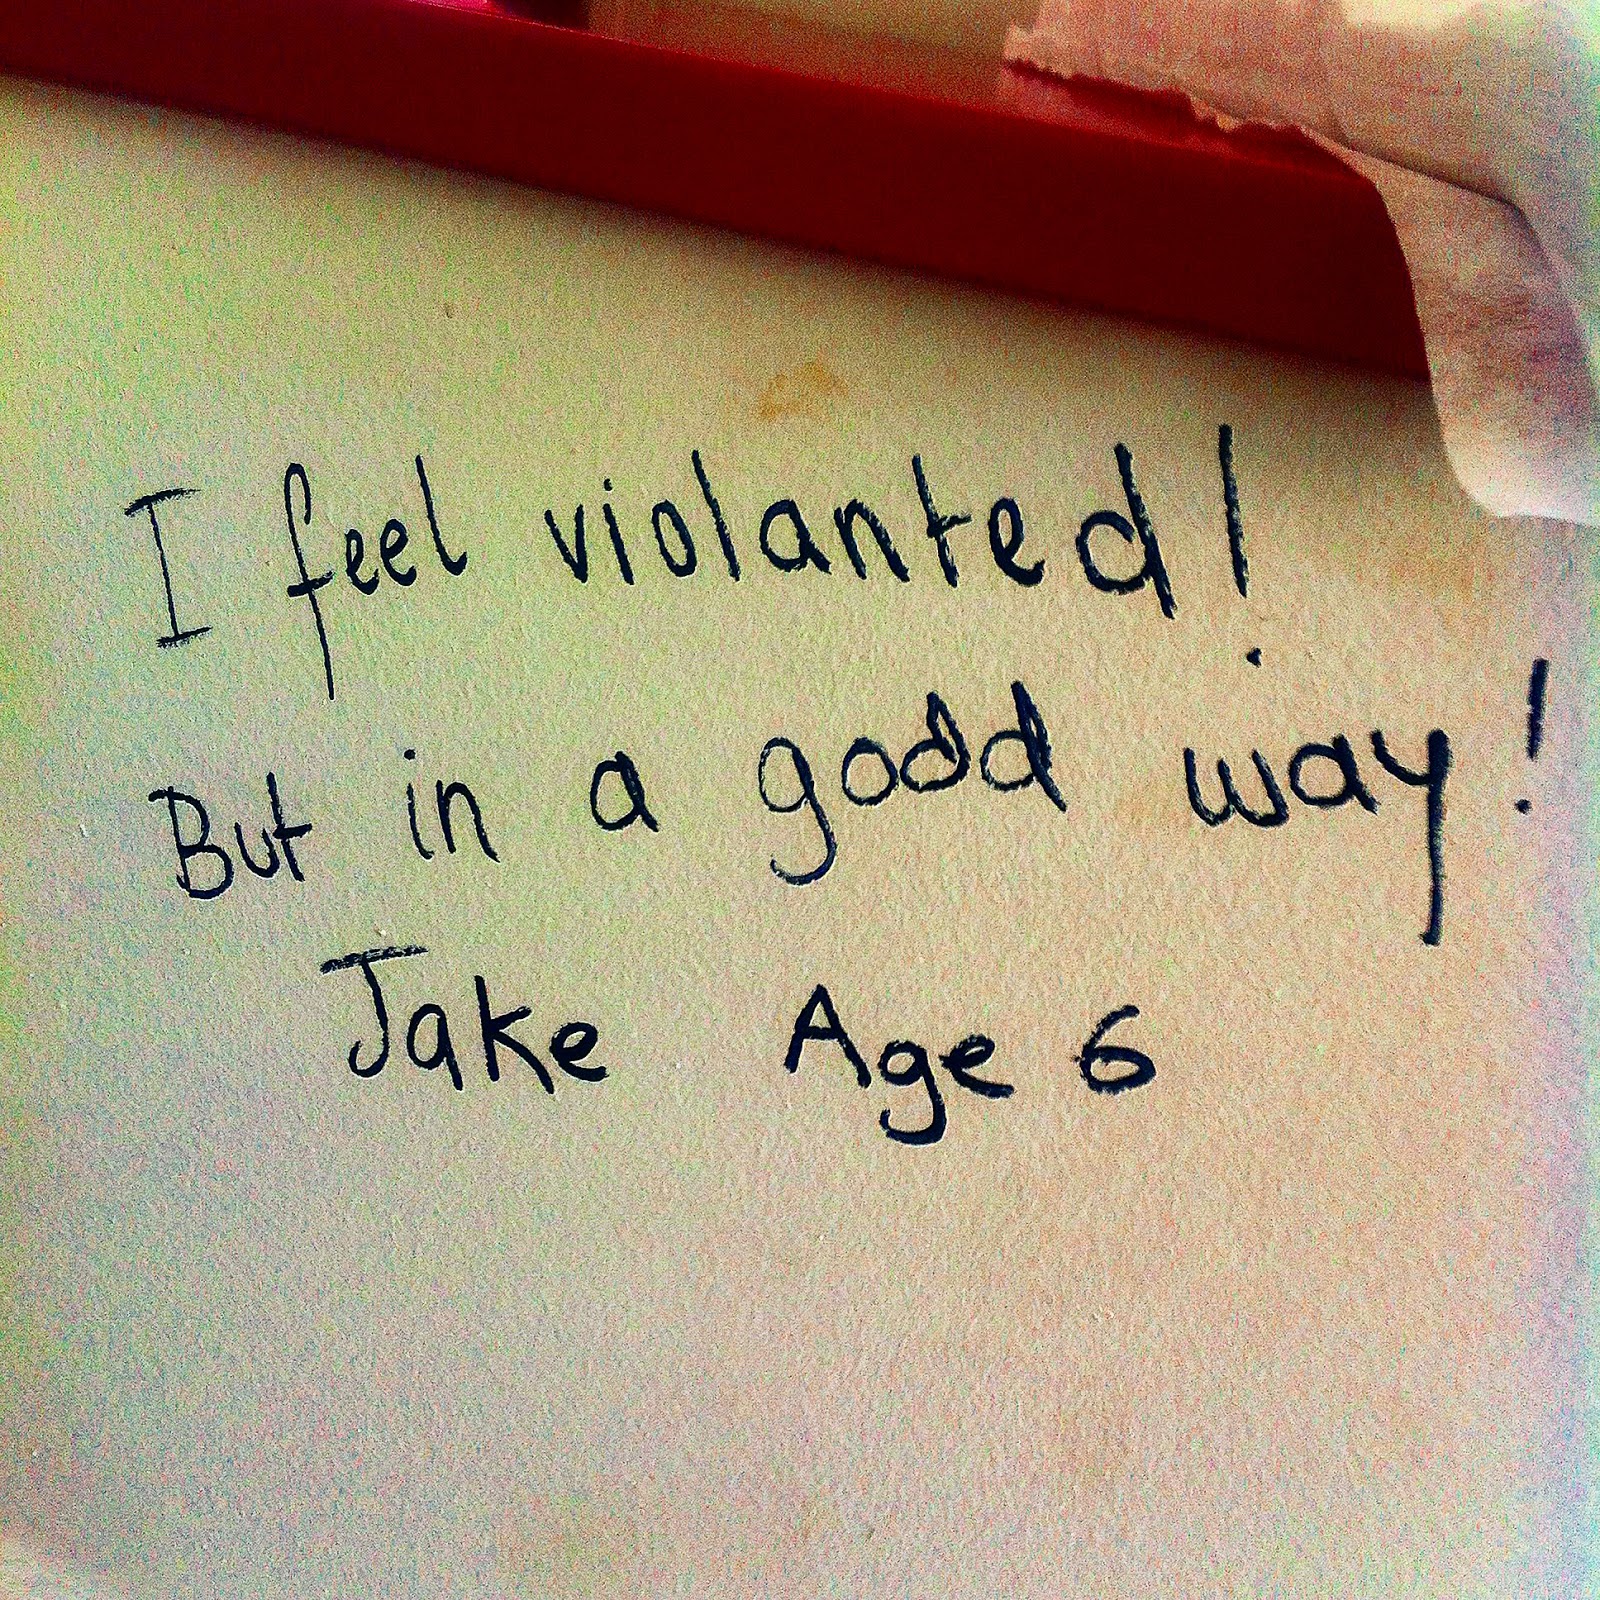 I feel violanted!
But in a godd way!
Jake Age 6